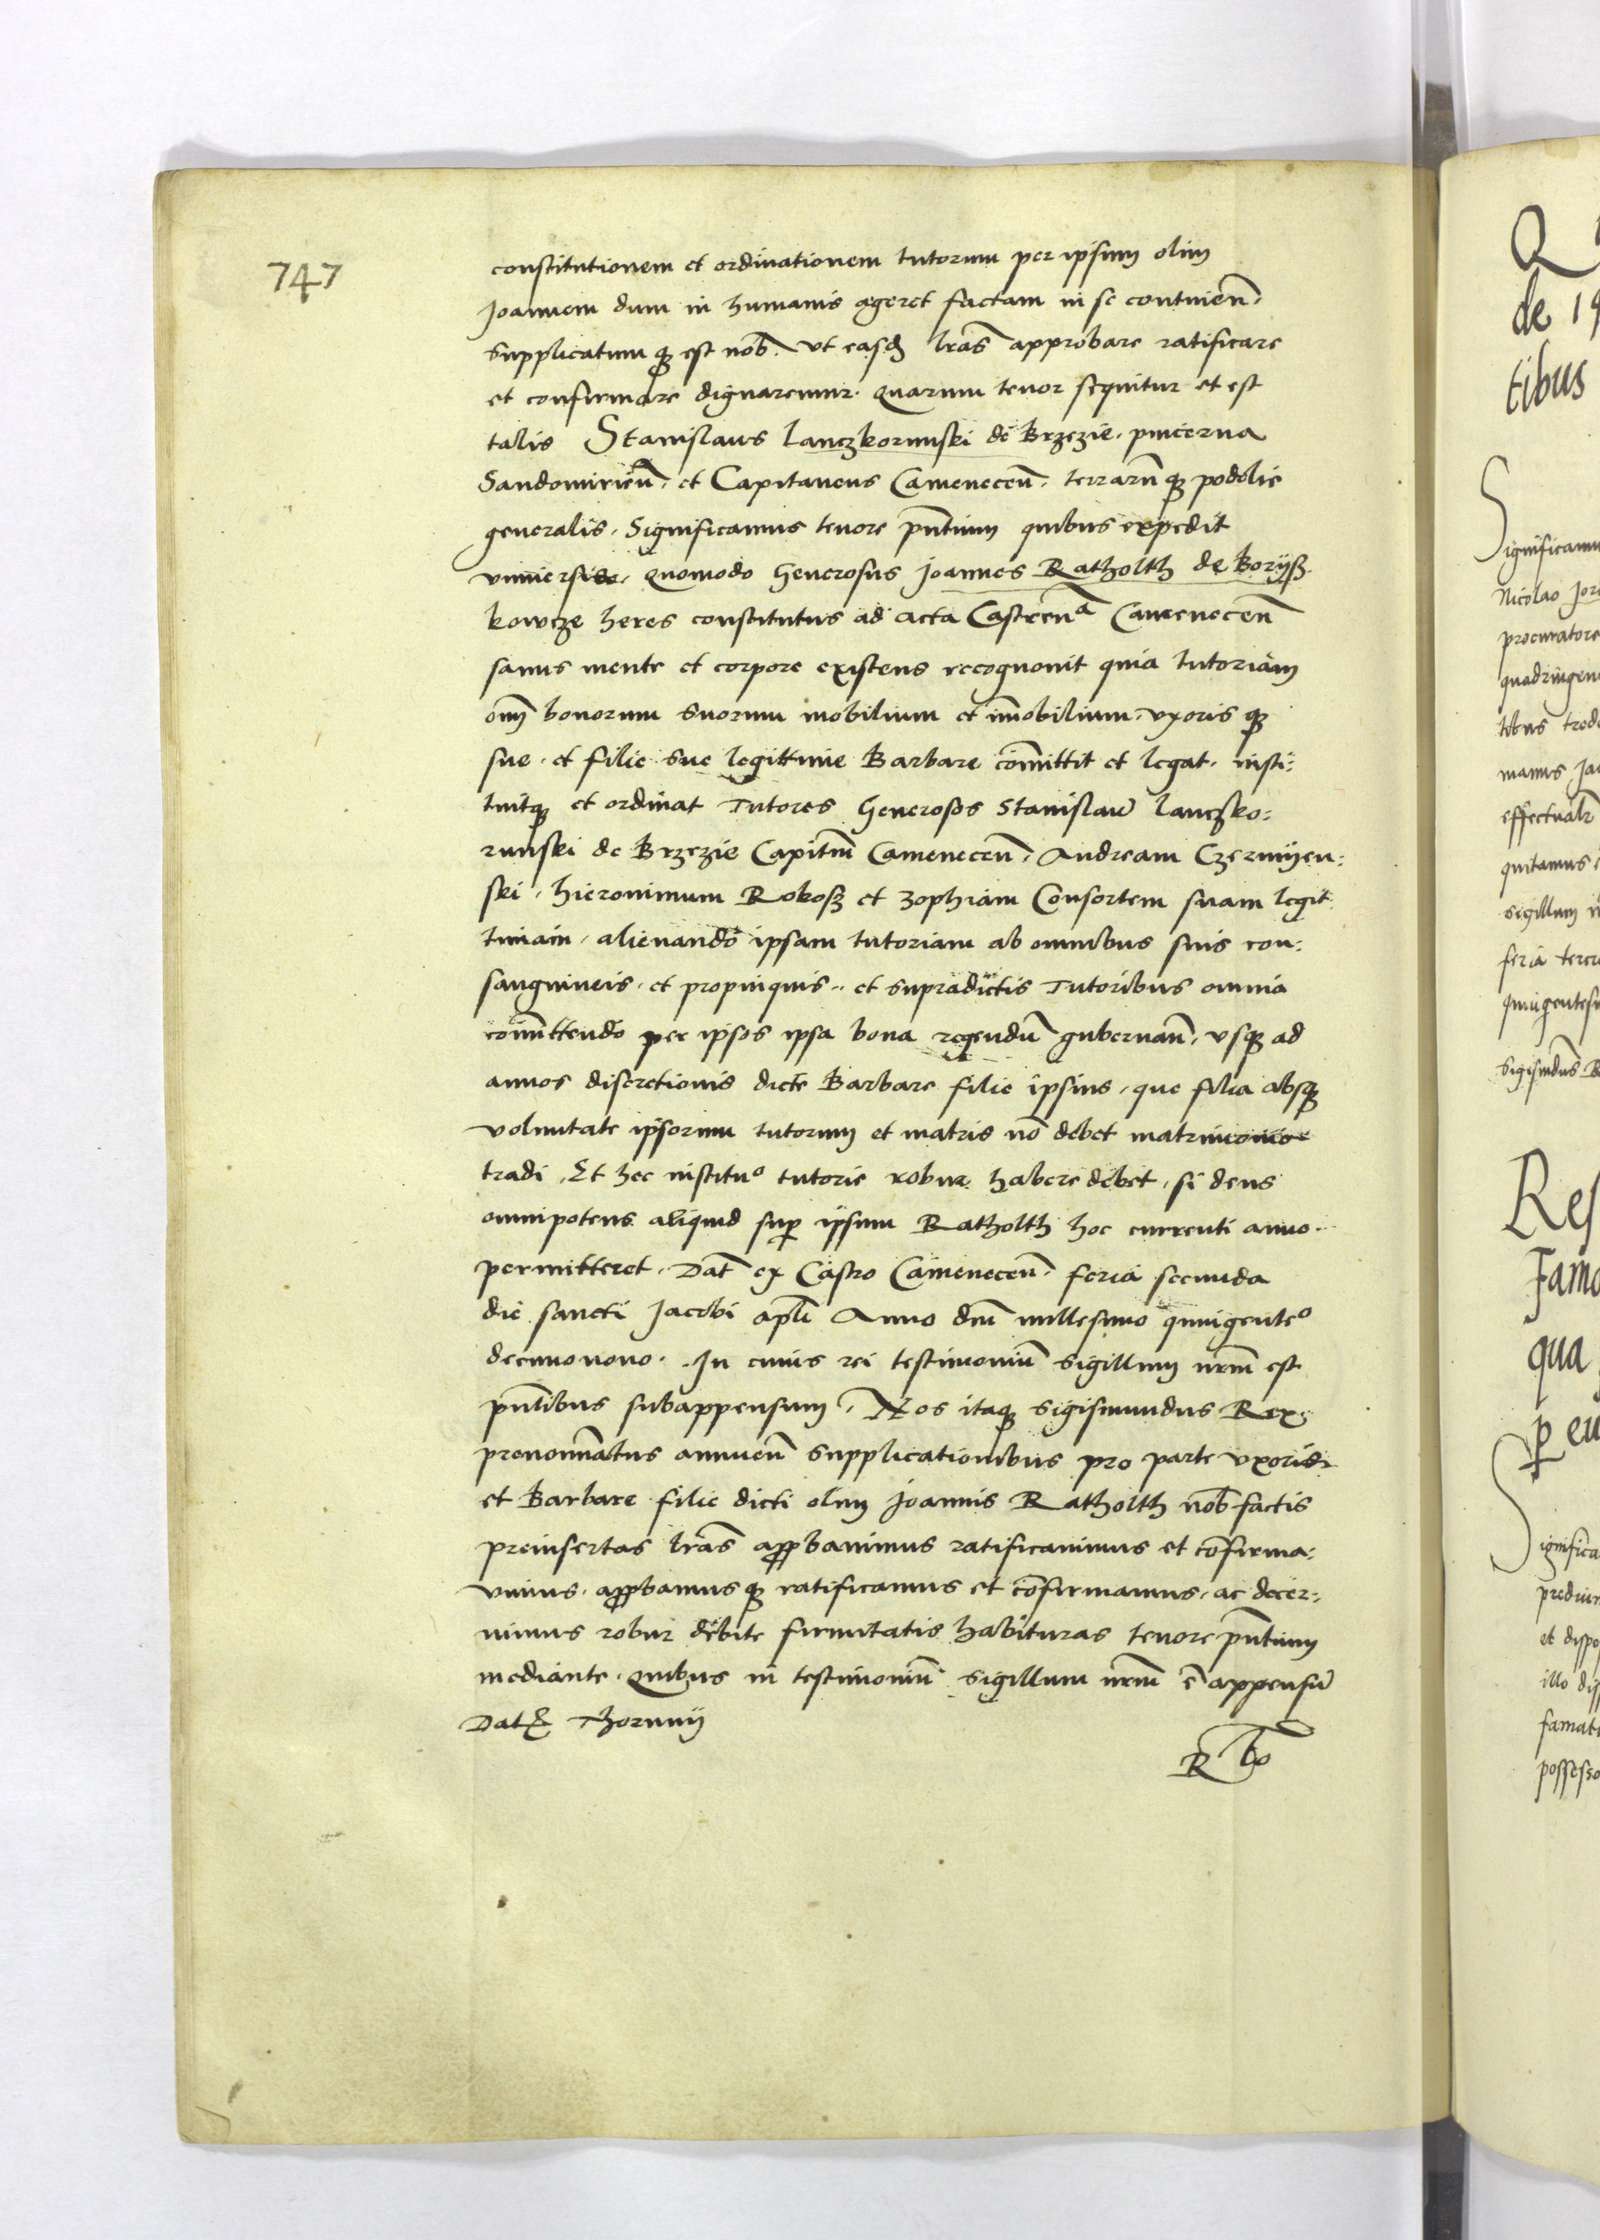 747
constitutionem et ordinationem tutorum per ipsum olim
Joannem dum in humanis ageret factam in se continen̄.
supplicatumqȝ est nob̄. vt easd̄ lr̄as approbare ratificare
et confirmare dignaremur. quarum tenor sequitur et est
talis Stanislaus Lanczkorunski de Brzezie. pincerna
Sandomirien̄. et Capitaneus Camenecen̄. terrarūqȝ podolie
generalis. Significamus tenore pn̄tium quibus expedit
vniuersis. quomodo Generosus Joannes Ratholth de Borijsz
kowcze heres constitutus ad acta Castren̄a Camenecen̄
sanus mente et corpore existens recognouit quia tutoriam
om̄ bonorum suorum mobilium et īmobilium. vxorisqȝ
sue. et filie sue legittime Barbare cōmittit et legat. insti:
tuitqȝ et ordinat Tutores Generosos Stanislaū Lanczko:
runski de Brzezie Capitn̄m Camenecen̄. Andream Czermijen:
ski. Hieronimum Rokosz et Zophiam Consortem suam legit
timam. alienando ipsam tutoriam ab omnibus suis con:
sanguineis. et propinquis.. et supradictis Tutoribus omnia
cōmittendo per ipsos ipsa bona regendū gubernan̄. vsqȝ ad
annos discretionis dicte Barbare filie ipsius. que filia absqȝ
voluntate ipsorum tutorum et matris nō debet matrimonio
tradi. Et hec institu^o tutorie robur habere debet. si deus
omnipotens aliquid sup̄ ipsum Ratholth hoc currenti anno.
permitteret. Dat̄ ex Castro Camenecen̄. feria secunda
die sancti Jacobi apl̄i Anno dn̄i millesimo quingente^o
decimonono. In cuius rei testimoniū sigillum nr̄m est
pn̄tibus subappensum. Nos itaqȝ Sigismundus Rex
prenoīnatus annuen̄ supplicationibus pro parte vxoris
et Barbare filie dicti olim Joannis Ratholth nob̄ factis
preinsertas lr̄as app̄bauimus ratificauimus et cōfirma:
uimus. app̄bamusqȝ ratificamus et cōfirmamus. ac decer:
nimus robur debite firmitatis habituras tenore pn̄tium
mediante. Quibus in testimoniū sigillum nr̄m ē appensū
Dat̄ Thorunij
Q
de 19
tibus
Significamus
Nicolao Jor
procuratore
quadringen
manus Ja
effectualr̄
quitamus
sigillum
feria terci
quingentesi
Res
Famo
qua
p̄ eu
Significa
et dispo
illo dis
famat
possesso